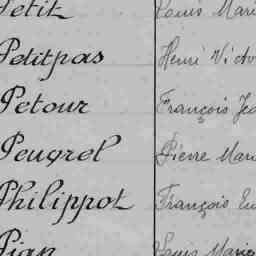 Petit Louis Mari
Petitpas Henri Victo
Petour François Je
Peugrel Pierre Mari
Philippot François Eu
Pian Louis Marie